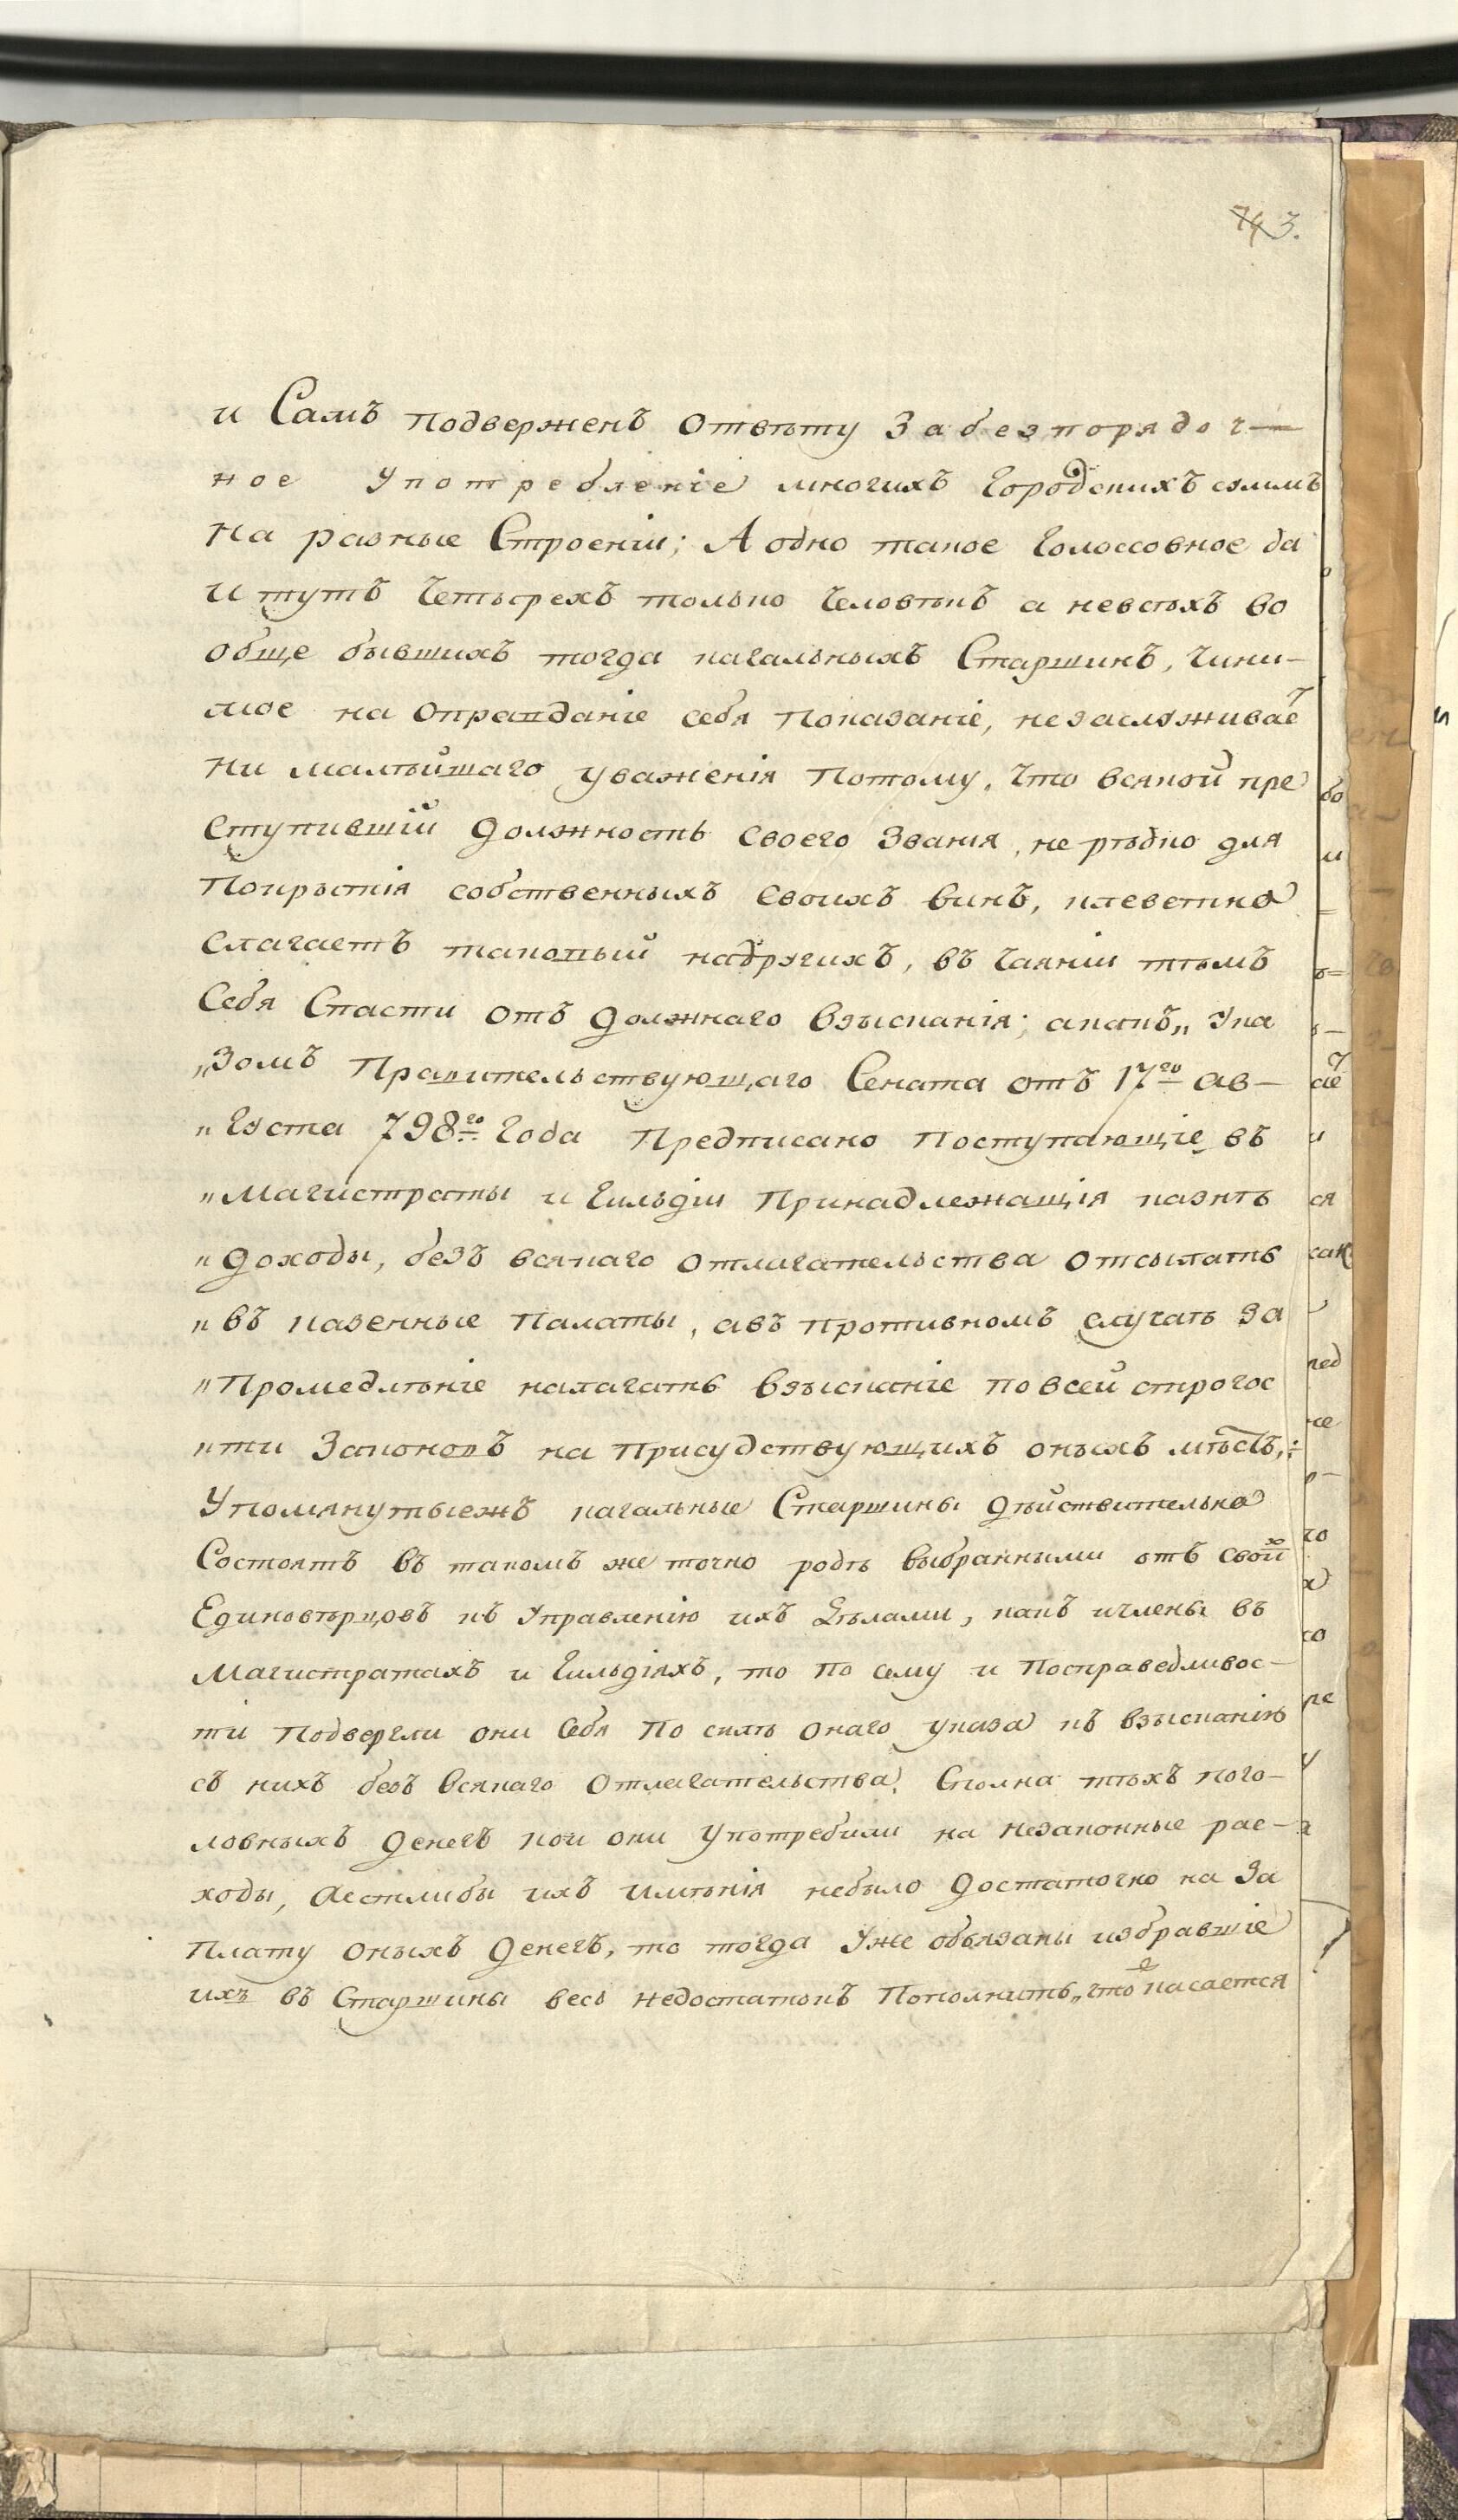 3.
и Самъ подверженъ отвѣту за безпорядоч-
ное употребленіе многихъ городскихъ суммъ
на разные строеніи; А одно такое голоссовное да
и тутъ четырехъ только человѣкъ а невсѣхъ во
обще бывшихъ тогда кагальныхъ Старшинъ, чини-
мое на оправданіе себя показаніе, незаслуживаетъ
ни малѣйшаго уваженія потому, что всякой пре
ступившій должность своего званія, не рѣдко для
покрытія собственныхъ своихъ винъ, клеветно
слагаетъ таковый надругихъ, въ чаяніи тѣмъ
Себя Спасти отъ должнаго взысканія; акакъ „ Ука
„зомъ Правительствующаго Сената отъ 17го ав-
„густа 798го года предписано поступающіе въ
„Магистраты и Гильдіи принадлежащія казнѣ
„доходы, безъ всякаго отлагательства отсылать
„въ казенные палаты, авъ противномъ случаѣ за
„промедлѣніе налагать взысканіе повсей строгос
„ти Законовъ на присудствующихъ оныхъ мѣстъ,
Упомянутыежъ кагальные Старшины дѣйствительно
Состоятъ въ такомъ же точно родѣ выбранными отъ своихъ
Единовѣрцовъ къ Управленію ихъ дѣлами, какъ ичлены въ
Магистратахъ и Гильдіяхъ, то по сему и посправедливос-
ти подвергли они себя по силѣ онаго указа къ взысканію
съ нихъ безъ всякаго отлагательства, сполна тѣхъ пого-
ловныхъ денегъ кои они употребили на незаконные рас-
ходы, аестлибы ихъ имѣнія небыло достаточно на за
плату оныхъ денегъ, то тогда уже обязаны избравшіе
ихъ въ Старшины весь недостатокъ пополнить, что касается